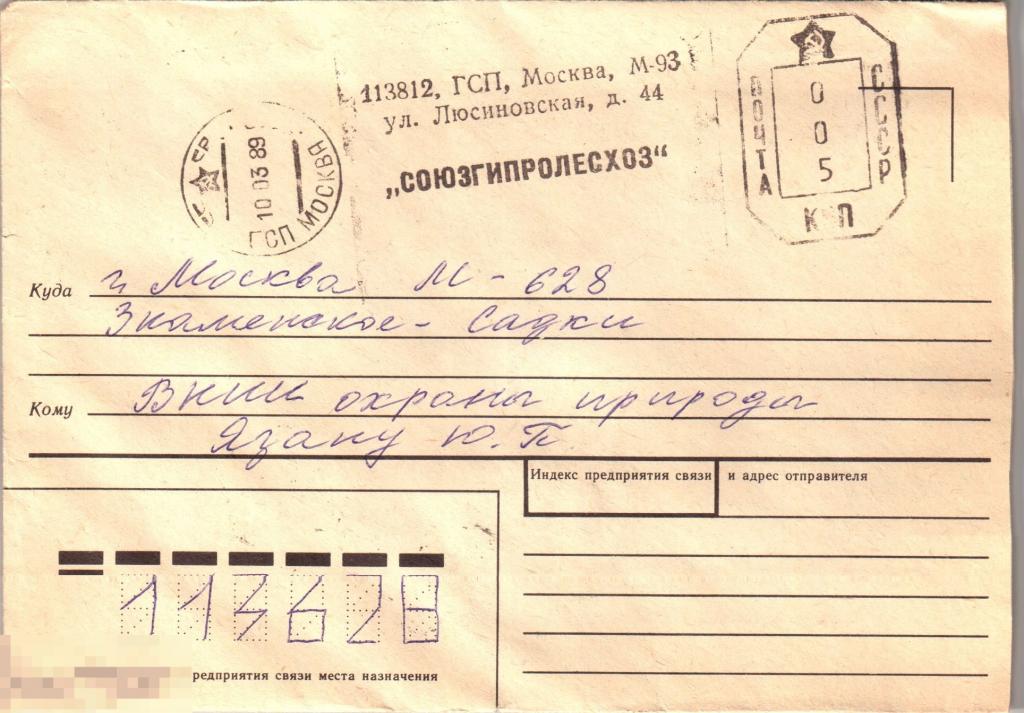 113812, ГСП, Москва, М-93
ул. Люсиновская, д. 44
„СОЮЗГИПРОЛЕСХОЗ“
10 03 89
ГСП МОСКВА
ПОЧТА
СССР
0
0
5
К П
Куда г. Москва М - 628
Знаменское - Садки
Кому ВНИИ охраны природы
Язану Ю. П.
Индекс предприятия связи и адрес отправителя
113628
редприятия связи места назначения